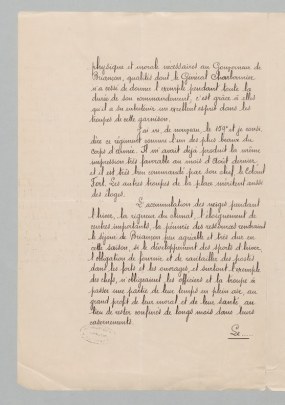 physique et morale nécessaires au Gouverneur de
Briançon, qualités dont le Général Charbonnier
n'a cessé de donner l'exemple pendant toute la
durée de son commandement, c'est grâce à elles
qu'il a su entretenir un excellent esprit dans les
troupes de cette garnison.
J'ai vu de nouveau, le 159e et je considère
ce régiment comme l'un des plus beaux du
Corps d'Armée. Il m'avait déjà produit la même
impression très favorable au mois d'Août dernier,
et il est très bien commandé par son chef, le Colonel
Les autres troupes de la place méritent aussi
des éloges.
L'accumulation des neiges pendant
l'hiver, la rigueur du climat, l'éloignement de
centres importants, la pénurie des ressources rendraient
le séjour de Briançon peu agréable et très dur en
cette saison, si le développement des sports d'hiver,
l'obligation de fournir et de ravitailler des postes
dans les forts et les ouvrages, et surtout l'exemple
des chefs, n'obligeaient les officiers et la troupe à
passer une partie de leur temps en plein air, au
grand profit de leur moral et de leur santé au
lieu de rester confinés de longs mois dans leurs
casernements.
Le